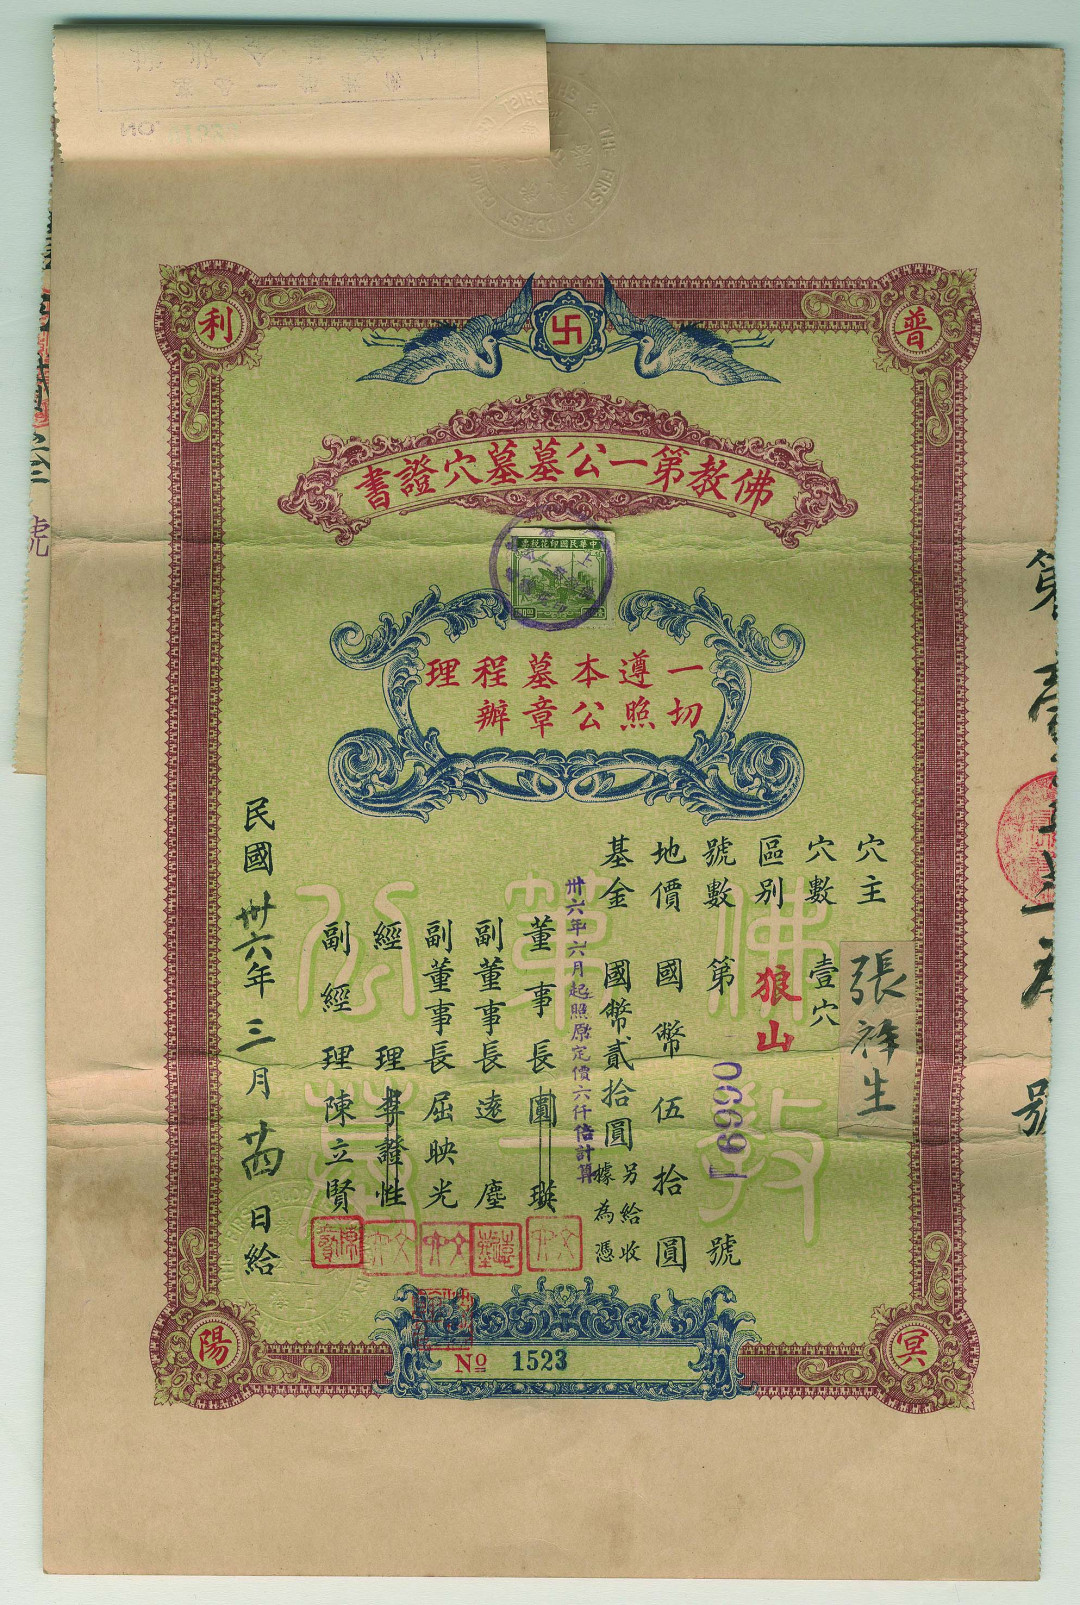 普
利
冥
陽
卍
佛教第一公墓墓穴證書
中華民國印花稅票
一切遵照本公墓章程辦理
穴主 張祥生
穴數 壹穴
區別 狼山
號數 第 06990 號
地價 國幣 伍拾圓
基金 國幣貳拾圓 另給收據為憑
卅六年六月起照原定價六仟倍計算
董事長 圓瑛
副董事長 遠塵
副董事長 屈映光
經理 證性
副經理 陳立賢
民國卅六年三月廿四日給
№ 1523
THE FIRST BUDDHIST CEMETERY